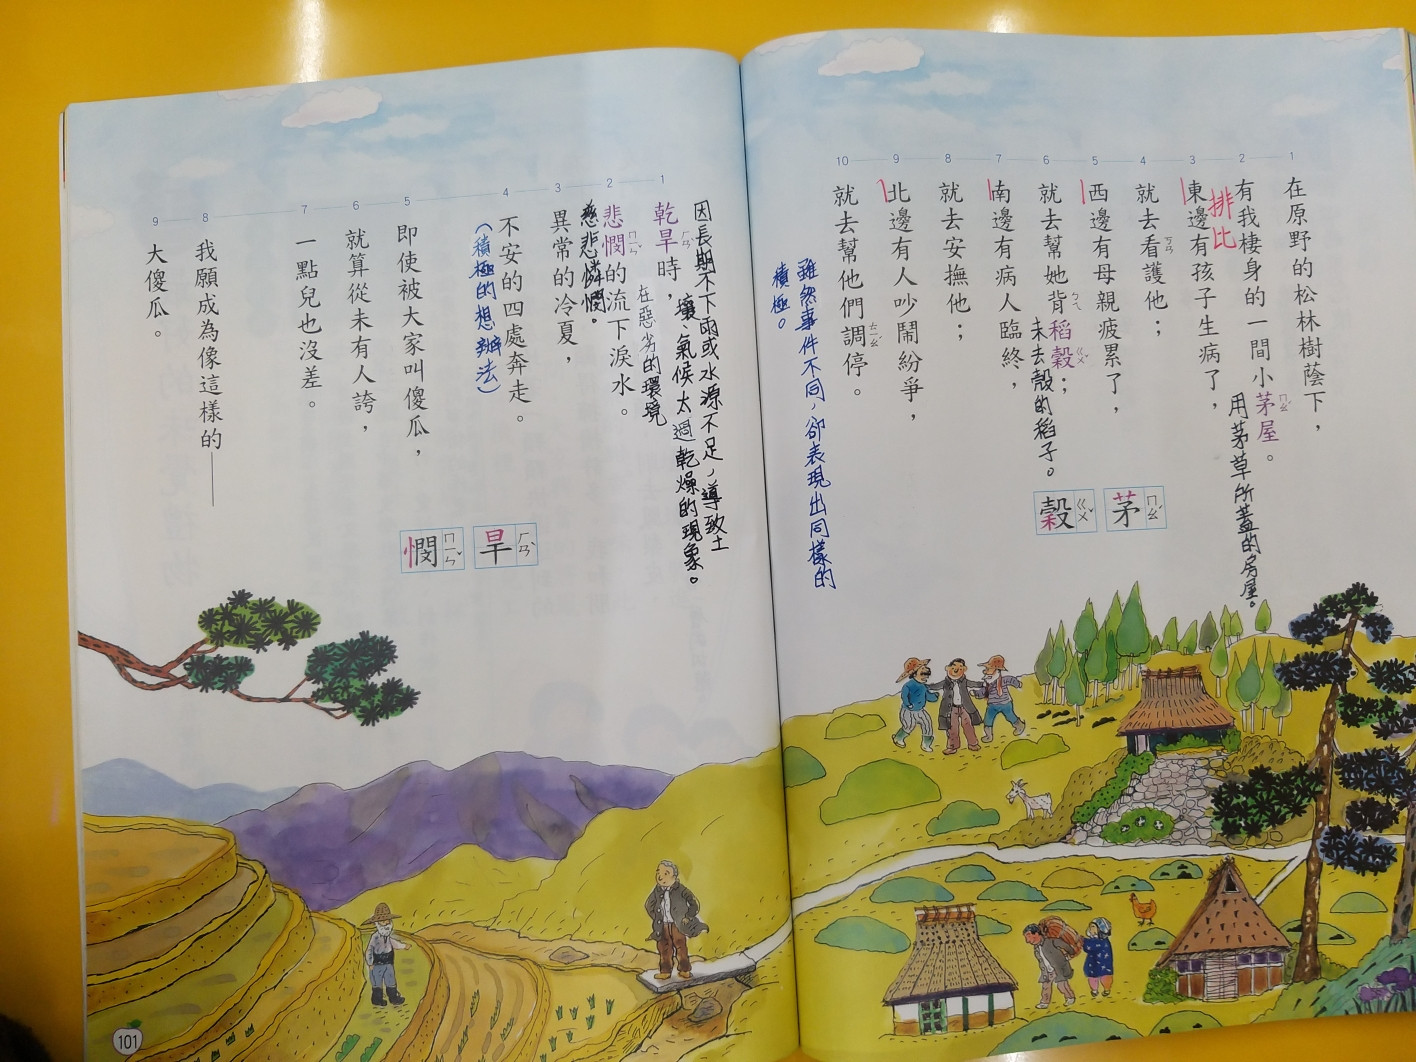 1 2 3 4 5 6 7 8 9 10
在原野的松林樹蔭下，
有我棲身的一間小茅屋。
用茅草所蓋的房屋。
排比
東邊有孩子生病了，
就去看護他；
ㄎㄢ
西邊有母親疲累了，
就去幫她背稻穀；
未去殼的稻子。
南邊有病人臨終，
就去安撫他；
北邊有人吵鬧紛爭，
就去幫他們調停。
ㄊㄧㄠˊ
茅 ㄇㄠˊ
穀 ㄍㄨˇ
雖然事件不同，卻表現出同樣的
積極。
1 2 3 4 5 6 7 8 9
因長期不下雨或水源不足，導致土
壤、氣候太過乾燥的現象。
乾旱時，
在惡劣的環境
悲憫的流下淚水。
慈悲憐憫。
異常的冷夏，
不安的四處奔走。
(積極的想辦法)
即使被大家叫傻瓜，
就算從未有人誇，
一點兒也沒差。
我願成為像這樣的——
大傻瓜。
旱 ㄏㄢˋ
憫 ㄇㄧㄣˇ
101